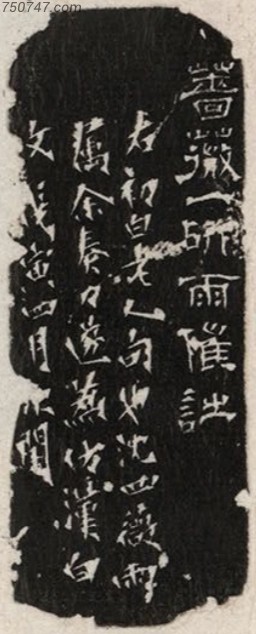 750747.com
薔薇一研雨催詩
右初白老人句也沈四薇雨
屬余奏刀遂為仿漢白
文戊寅四月次閒